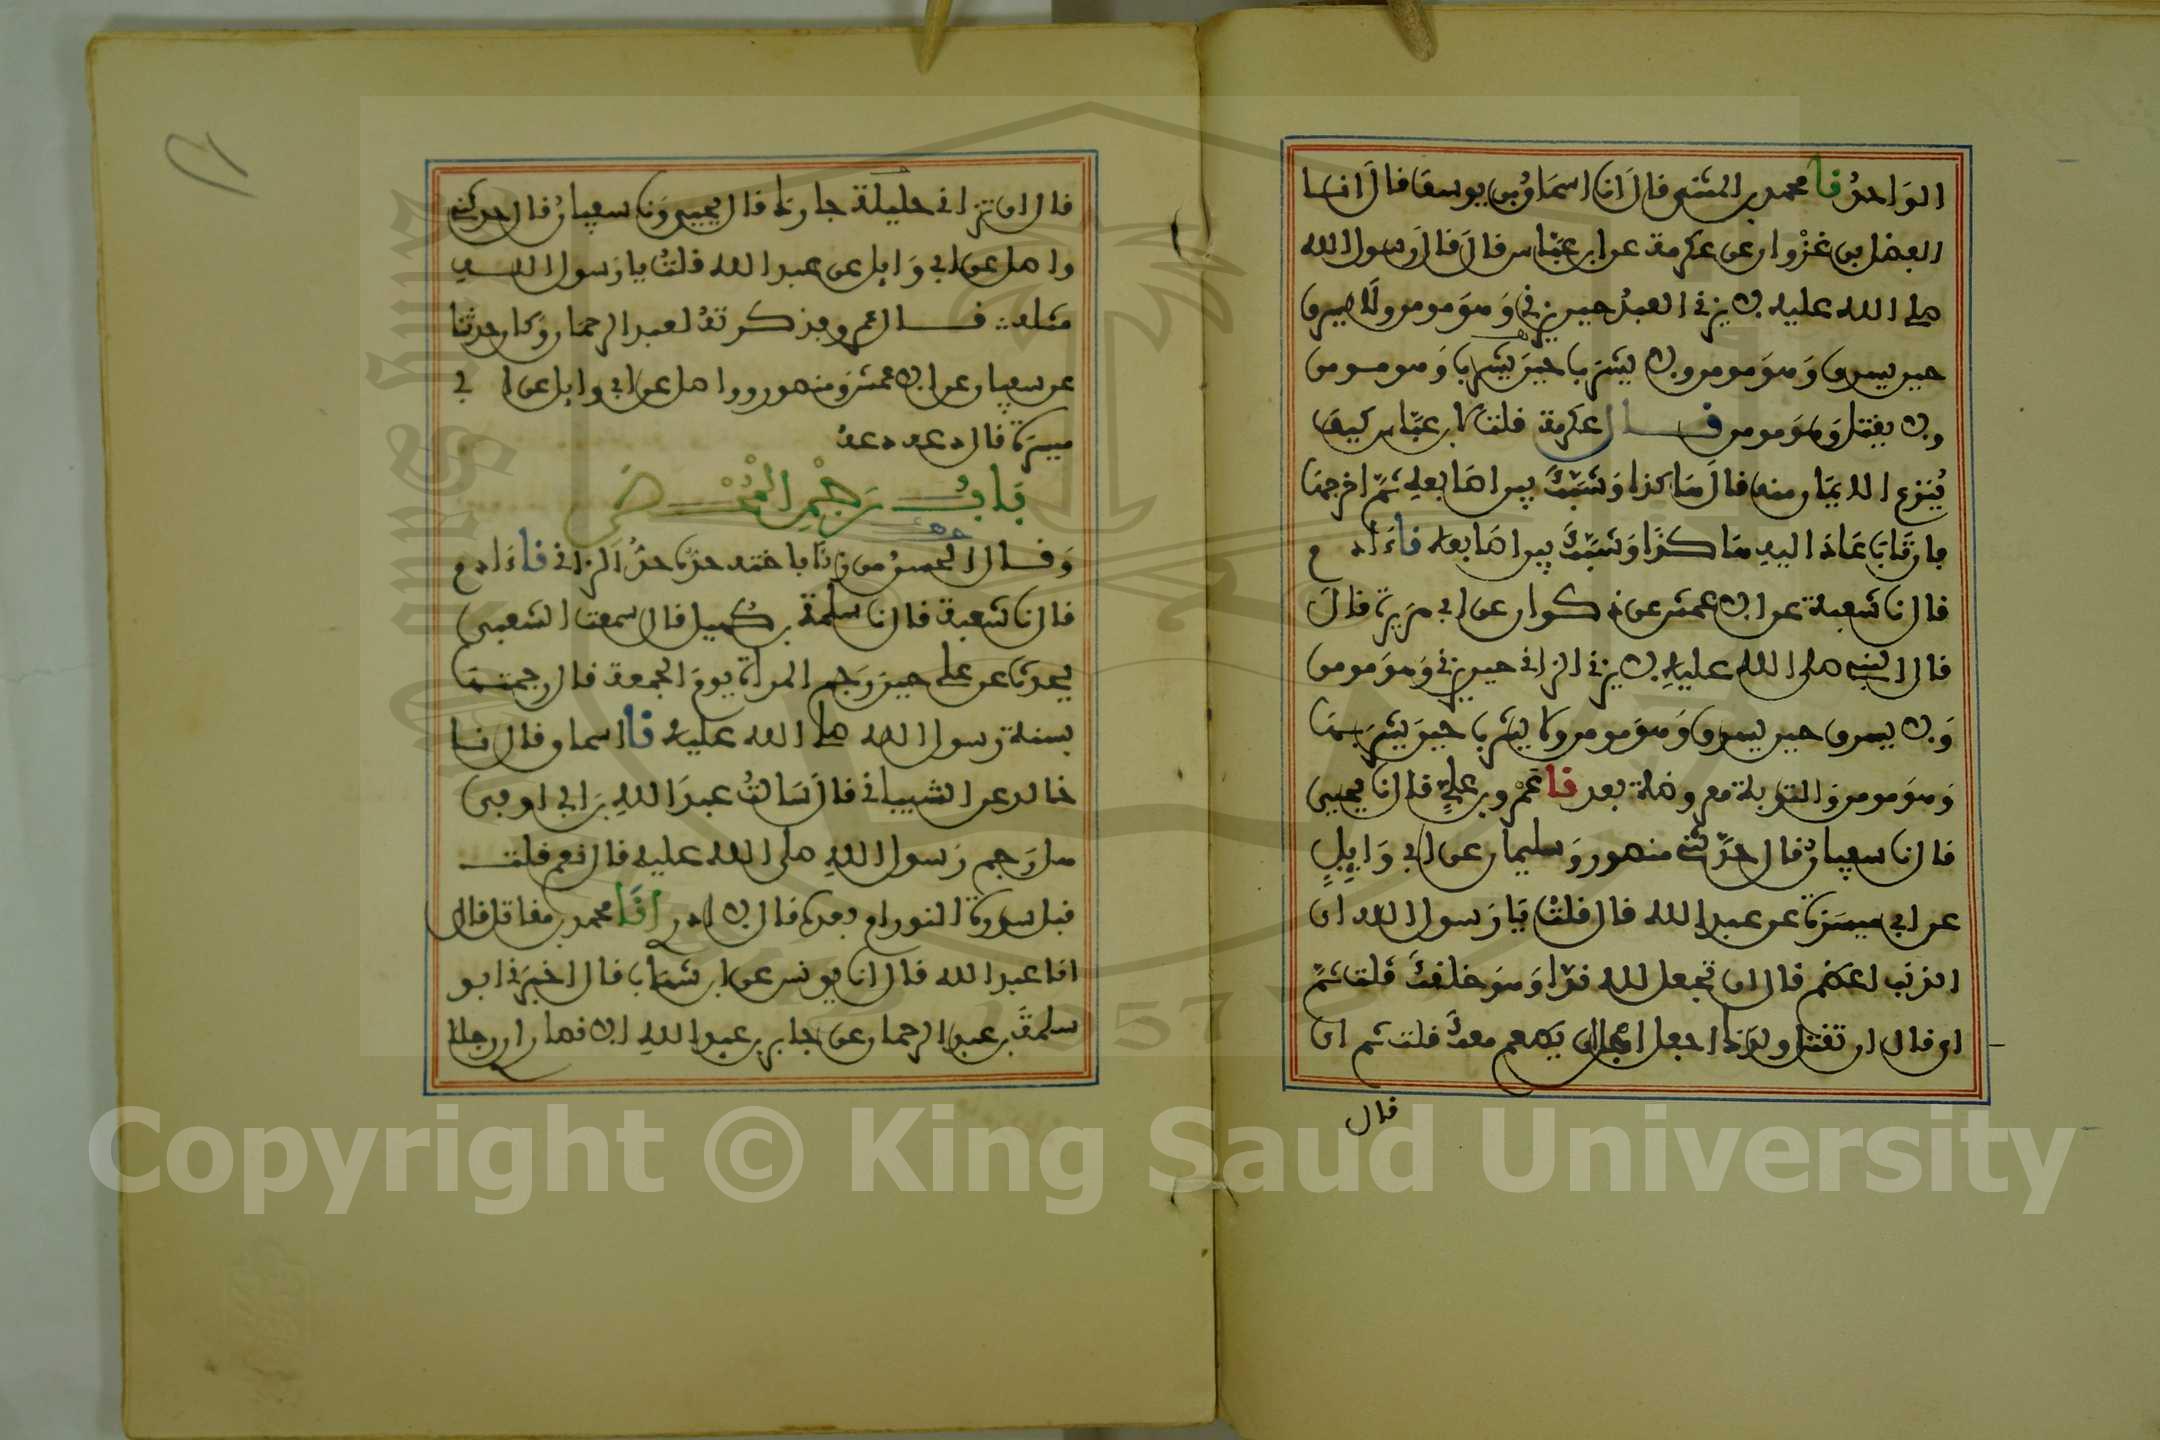 الوَاحدُ نا محمد بن المثنى قال انا اسحاق بن يوسف قال انا
الفضيل بن غزوان عن عكرمة عن ابن عباس قال قال رسول الله
صلى الله عليه لا يزني العبد حين يزني وهو مومن ولا يسرق
حين يسرق وهو مومن ولا يشرب حين يشربها وهو مومن
ولا يقتل وهو مومن قال عكرمة قلت لابن عباس كيف
يُنزع الايمان منه قال هاكذا وشبك بين اصابعه ثم اخرجها
فان تاب عاد اليه هاكذا وشبك بين اصابعه نا ءادم
قال نا شعبة عن الاعمش عن ذكوان عن ابي هريرة قال
قال النبي صلى الله عليه لا يزني الزاني حين يزني وهو مومن
ولا يسرق حين يسرق وهو مومن ولا يشرب حين يشربها
وهو مومن والتوبة معروضة بعد نا عمرو بن علي قال نا يحيى
قال نا سفيان قال حدثني منصور وسليمان عن ابي وايل
عن ابي ميسرة عن عبد الله قال قلت يا رسول الله اي
الذنب اعظم قال ان تجعل لله ندا وهو خلقك قلت ثم
اي قال ان تقتل ولدك اجل ان يطعم معك قلت ثم اي
قال
قال ان تزاني حليلة جارك قال يحيى ونا سفيان قال حدثني
واصل عن ابي وايل عن عبد الله قلت يا رسول الله
مثله قال عمرو فذكرته لعبد الرحمن وكان حدثنا
عن سفيان عن الاعمش ومنصور وواصل عن ابي وايل عن ابي
ميسرة قال دعه دعه
باب رجم المحصن
وقال الحسن من زنا باخته حده حد الزاني نا ءادم
قال نا شعبة قال نا سلمة بن كهيل قال سمعت الشعبي
يحدث عن علي حين رجم المراة يوم الجمعة قال رجمتها
بسنة رسول الله صلى الله عليه نا اسحاق قال نا
خالد عن الشيباني قال سالت عبد الله بن ابي اوفى
هل رجم رسول الله صلى الله عليه قال نعم قلت
قبل سورة النور ام بعد قال لا ادري انا محمد بن مقاتل قال
انا عبد الله قال انا يونس عن ابن شهاب قال اخبرني ابو
سلمة بن عبد الرحمان عن جابر بن عبد الله الانصاري ان رجلا
Copyright © King Saud University
1957